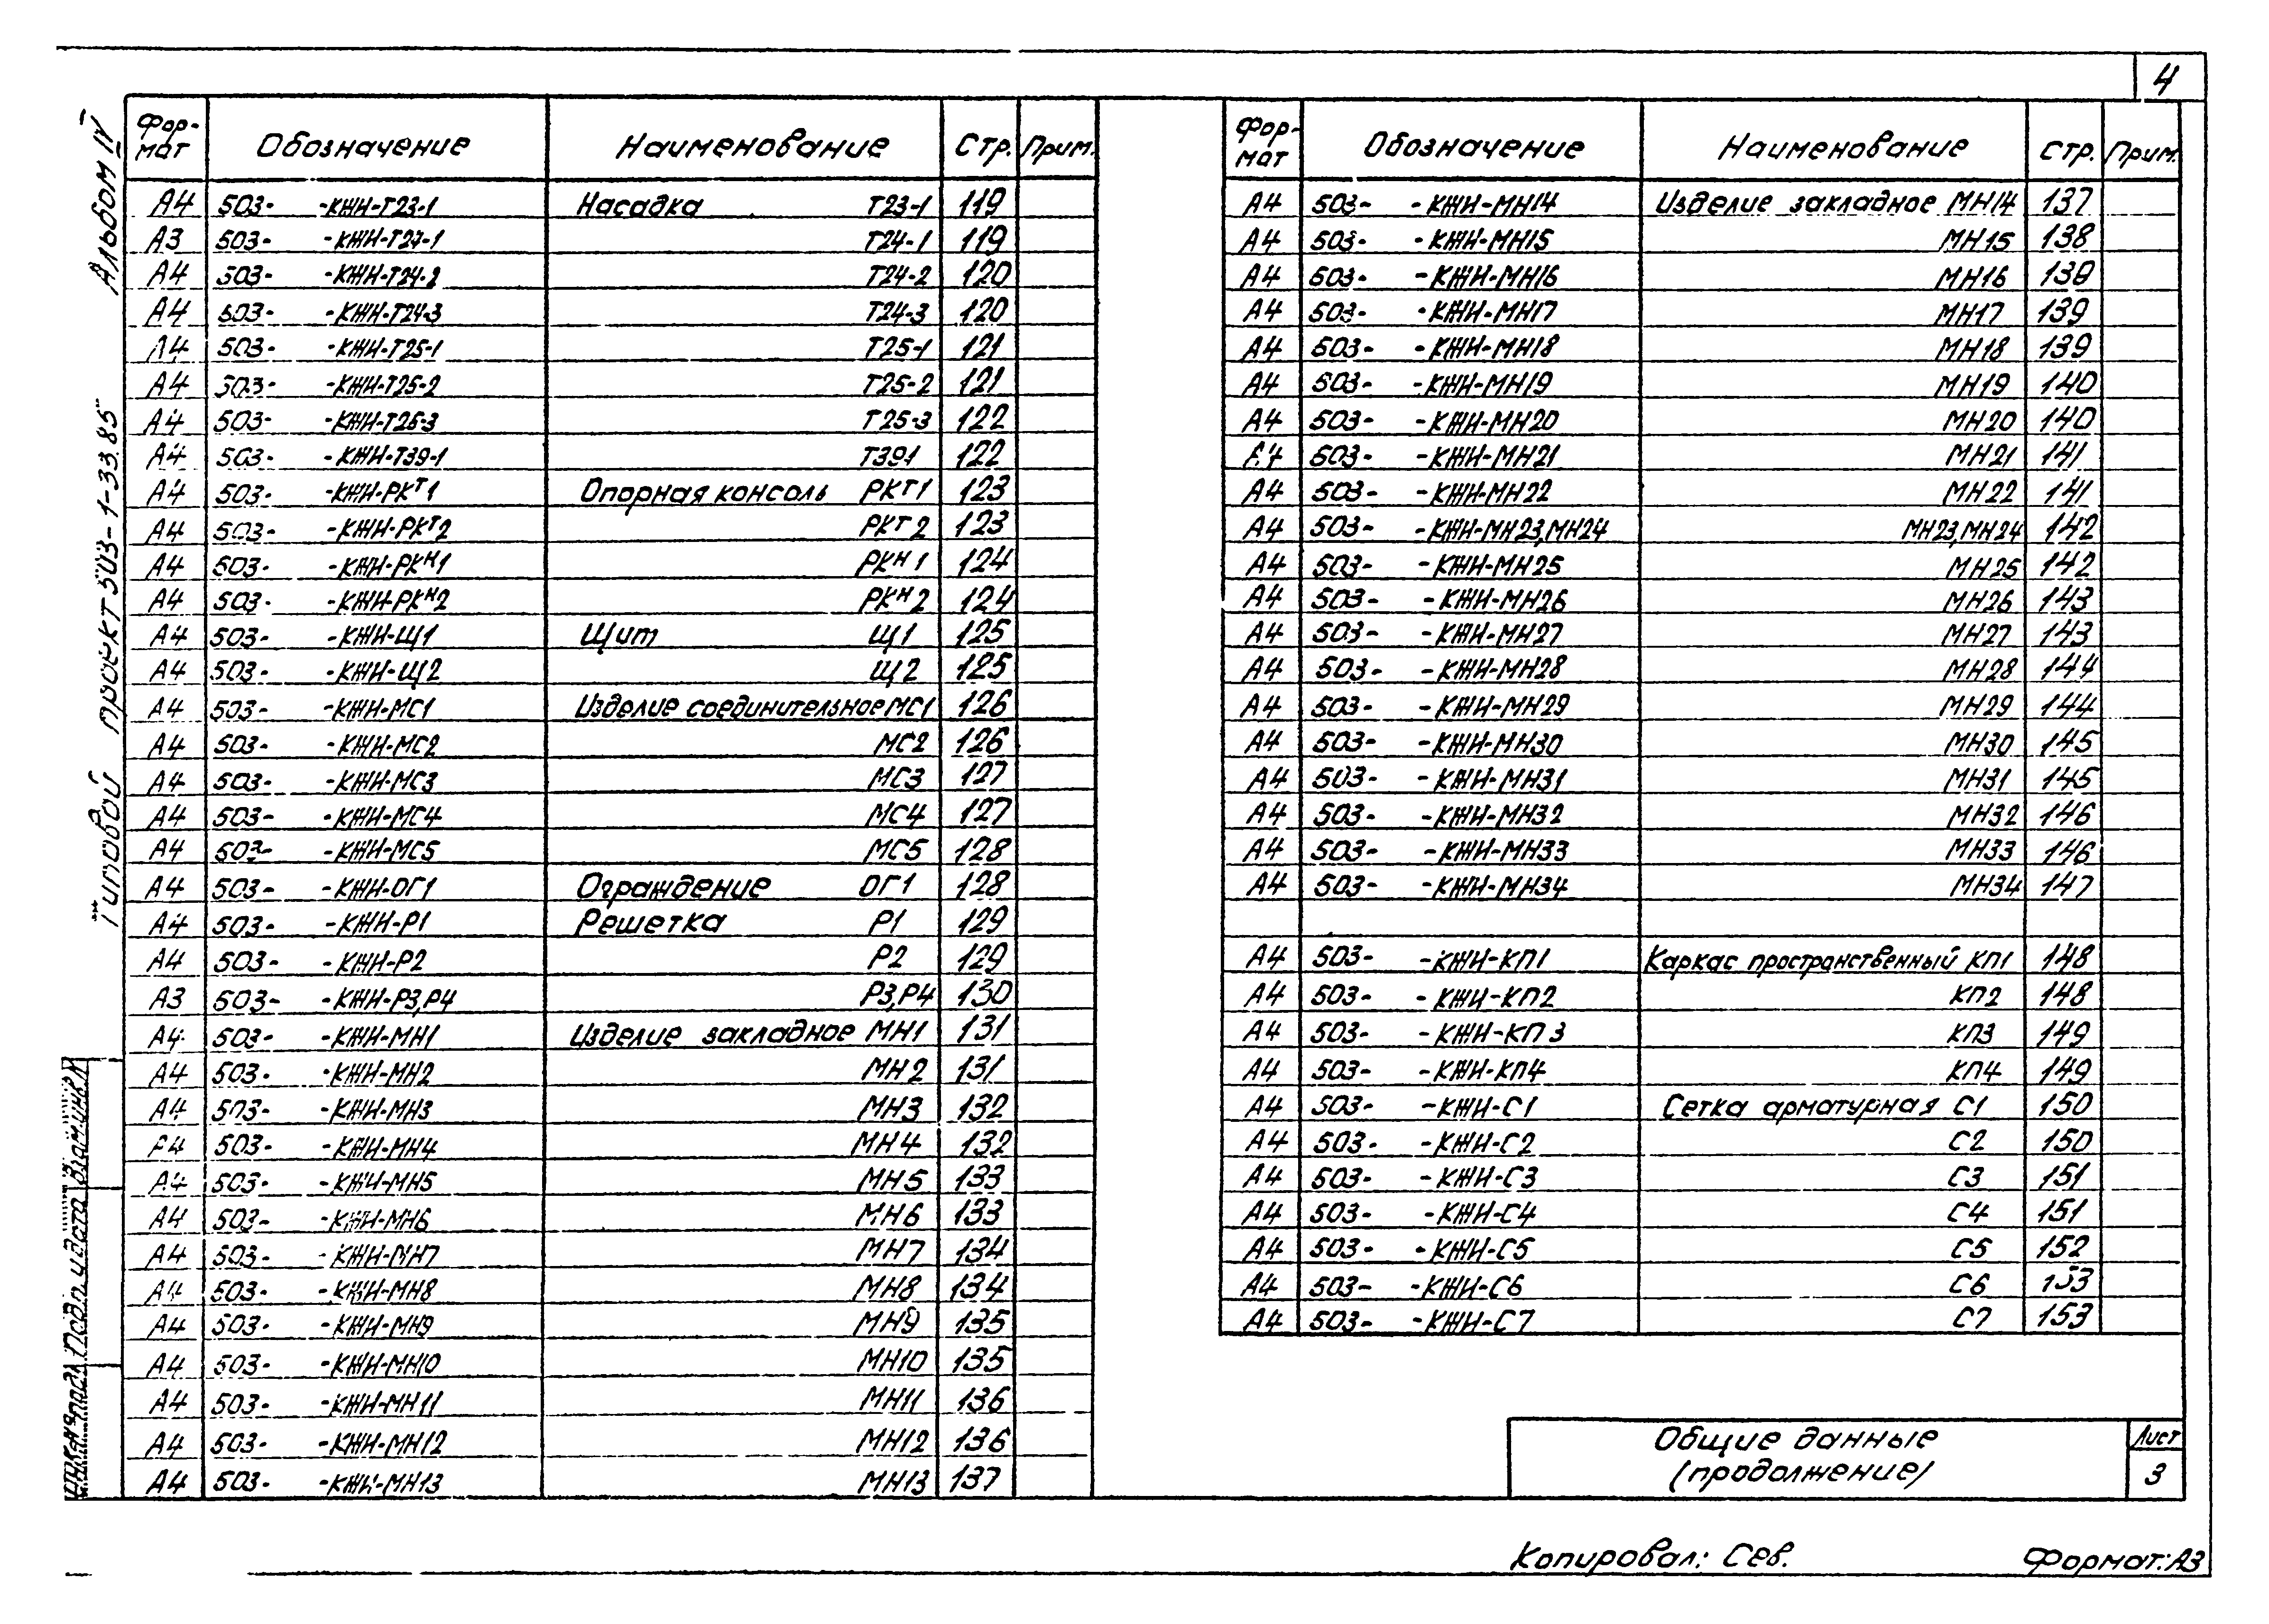 4
Альбом IV
Типовой проект 503-1-33.85
Фор-мат Обозначение Наименование Стр. Прим.
А4 503- -КЖИ-Т23-1 Насадка Т23-1 119
А3 503- -КЖИ-Т24-1 Т24-1 119
А4 503- -КЖИ-Т24-2 Т24-2 120
А4 503- -КЖИ-Т24-3 Т24-3 120
А4 503- -КЖИ-Т25-1 Т25-1 121
А4 503- -КЖИ-Т25-2 Т25-2 121
А4 503- -КЖИ-Т25-3 Т25-3 122
А4 503- -КЖИ-Т39-1 Т39-1 122
А4 503- -КЖИ-РКТ1 Опорная консоль РКТ1 123
А4 503- -КЖИ-РКТ2 РКТ2 123
А4 503- -КЖИ-РКН1 РКН1 124
А4 503- -КЖИ-РКН2 РКН2 124
А4 503- -КЖИ-Щ1 Щит Щ1 125
А4 503- -КЖИ-Щ2 Щ2 125
А4 503- -КЖИ-МС1 Изделие соединительное МС1 126
А4 503- -КЖИ-МС2 МС2 126
А4 503- -КЖИ-МС3 МС3 127
А4 503- -КЖИ-МС4 МС4 127
А4 503- -КЖИ-МС5 МС5 128
А4 503- -КЖИ-ОГ1 Ограждение ОГ1 128
А4 503- -КЖИ-Р1 Решетка Р1 129
А4 503- -КЖИ-Р2 Р2 129
А3 503- -КЖИ-Р3,Р4 Р3,Р4 130
А4 503- -КЖИ-МН1 Изделие закладное МН1 131
А4 503- -КЖИ-МН2 МН2 131
А4 503- -КЖИ-МН3 МН3 132
А4 503- -КЖИ-МН4 МН4 132
А4 503- -КЖИ-МН5 МН5 133
А4 503- -КЖИ-МН6 МН6 133
А4 503- -КЖИ-МН7 МН7 134
А4 503- -КЖИ-МН8 МН8 134
А4 503- -КЖИ-МН9 МН9 135
А4 503- -КЖИ-МН10 МН10 135
А4 503- -КЖИ-МН11 МН11 136
А4 503- -КЖИ-МН12 МН12 136
А4 503- -КЖИ-МН13 МН13 137
Фор-мат Обозначение Наименование Стр. Прим.
А4 503- -КЖИ-МН14 Изделие закладное МН14 137
А4 503- -КЖИ-МН15 МН15 138
А4 503- -КЖИ-МН16 МН16 138
А4 503- -КЖИ-МН17 МН17 139
А4 503- -КЖИ-МН18 МН18 139
А4 503- -КЖИ-МН19 МН19 140
А4 503- -КЖИ-МН20 МН20 140
А4 503- -КЖИ-МН21 МН21 141
А4 503- -КЖИ-МН22 МН22 141
А4 503- -КЖИ-МН23,МН24 МН23,МН24 142
А4 503- -КЖИ-МН25 МН25 142
А4 503- -КЖИ-МН26 МН26 143
А4 503- -КЖИ-МН27 МН27 143
А4 503- -КЖИ-МН28 МН28 144
А4 503- -КЖИ-МН29 МН29 144
А4 503- -КЖИ-МН30 МН30 145
А4 503- -КЖИ-МН31 МН31 145
А4 503- -КЖИ-МН32 МН32 146
А4 503- -КЖИ-МН33 МН33 146
А4 503- -КЖИ-МН34 МН34 147
А4 503- -КЖИ-КП1 Каркас пространственный КП1 148
А4 503- -КЖИ-КП2 КП2 148
А4 503- -КЖИ-КП3 КП3 149
А4 503- -КЖИ-КП4 КП4 149
А4 503- -КЖИ-С1 Сетка арматурная С1 150
А4 503- -КЖИ-С2 С2 150
А4 503- -КЖИ-С3 С3 151
А4 503- -КЖИ-С4 С4 151
А4 503- -КЖИ-С5 С5 152
А4 503- -КЖИ-С6 С6 153
А4 503- -КЖИ-С7 С7 153
Инв.№ подл. Подп. и дата Взам.инв.№
Общие данные
(продолжение)
Лист
3
Копировал: Сев. Формат: А3